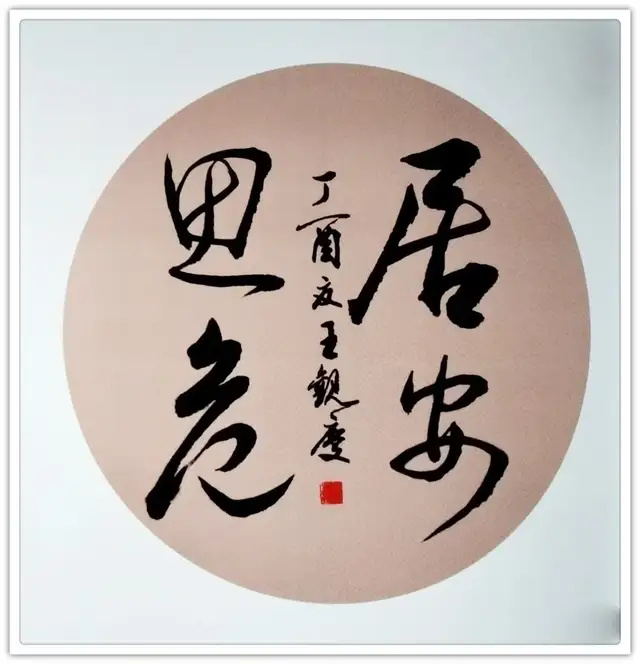 居安
思危
丁酉夏王觀